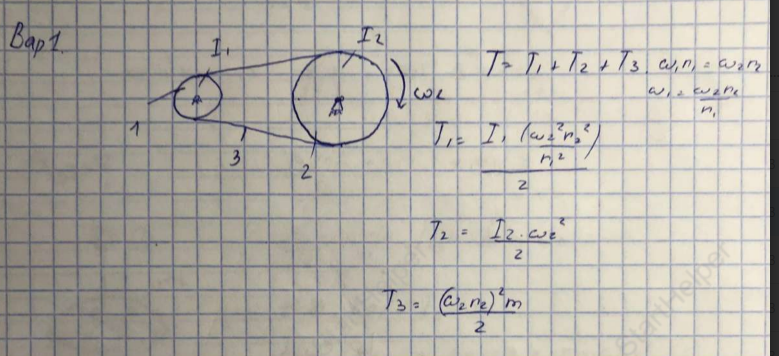 Вар 1.
I₁
I₂
ω₂
1
3
2
T = T₁ + T₂ + T₃. ω₁r₁ = ω₂r₂
ω₁ = ω₂r₂/r₁
T₁ = I₁ (ω₂²r₂²/r₁²)/2
T₂ = I₂ · ω₂²/2
T₃ = (ω₂r₂)² m/2